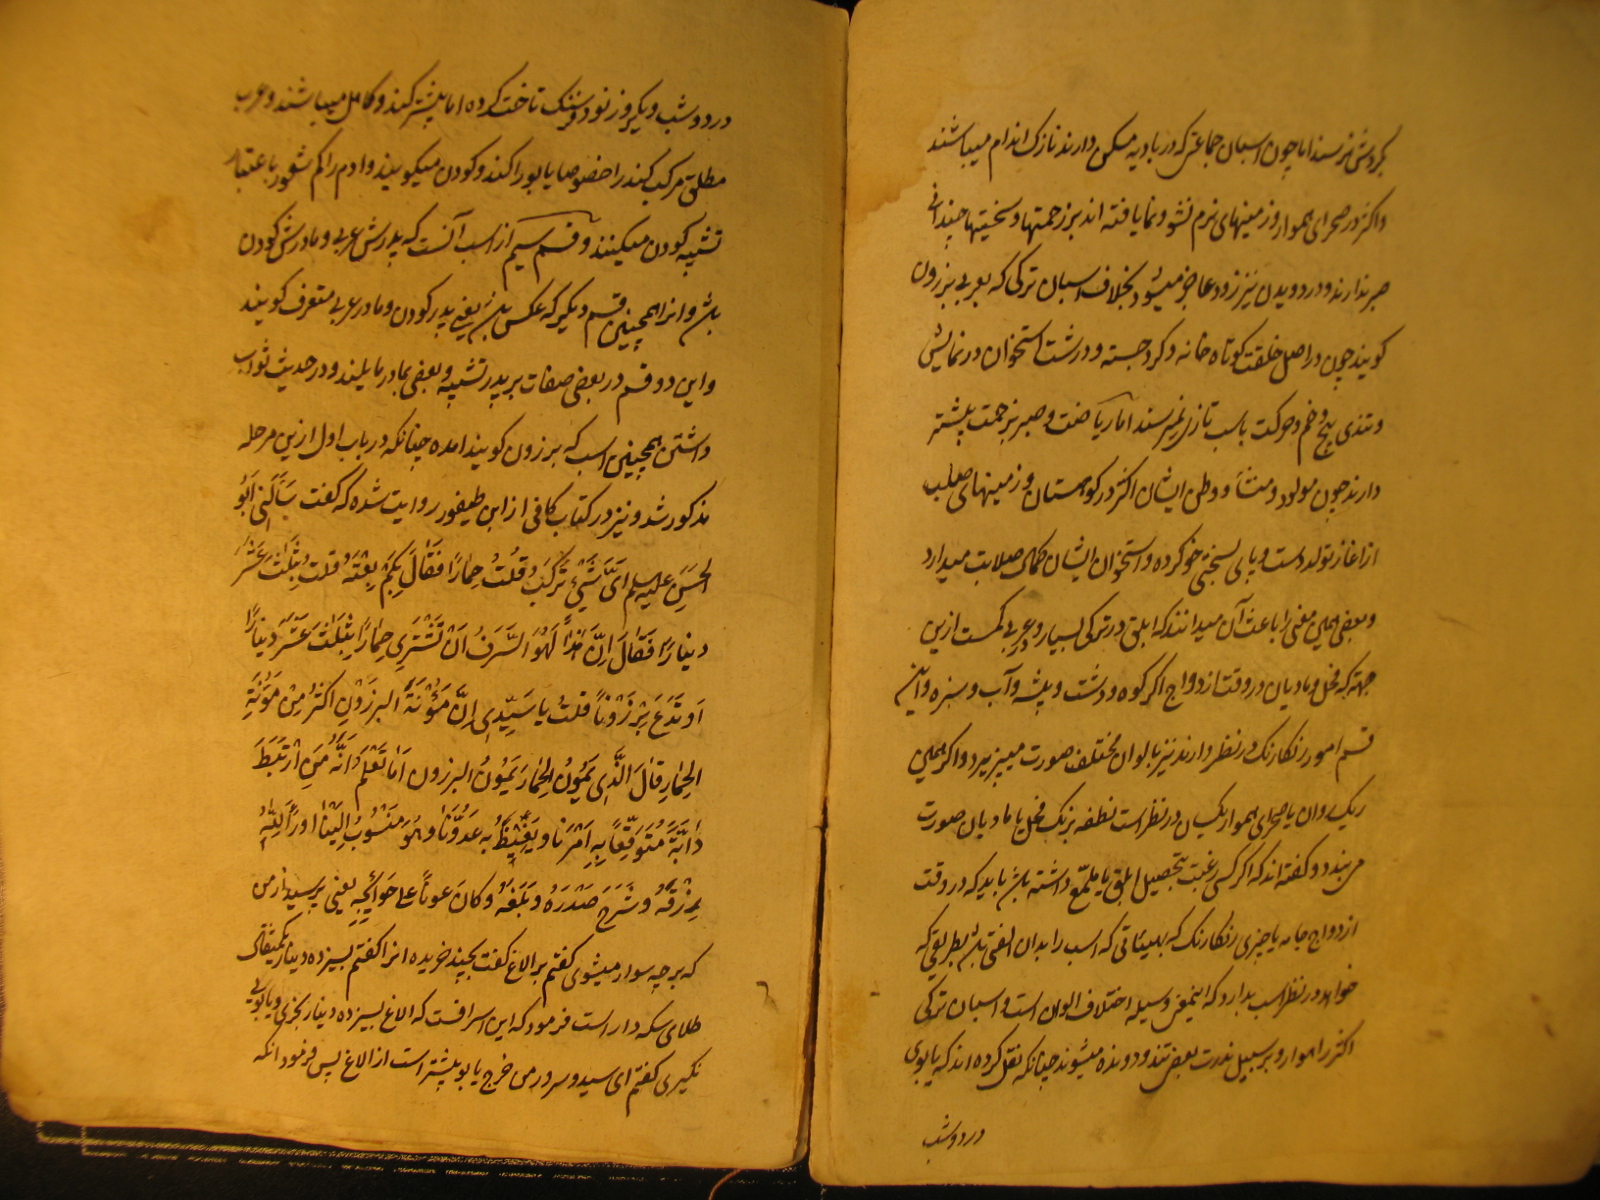 بکردش نرسند اما چون اسبان جماعتی که در بادیه مسکن دارند نازک اندام میباشند
و اکثر در صحرای هموار و زمینهای نرم نشو و نما یافته اند بر زحمتها و سختیها چندانی
صبر ندارند و در دویدن نیز زود عاجز میشوند بخلاف اسبان ترکی که بعربی برزون
کویند چون در اصل خلقت کوتاه خانه و کرد جسته و درشت استخوان در نمایش
و تندی پیچ و خم و حرکت باسب تازی نمیرسند اما ریاضت و صبر بر زحمت بیشتر
دارند چون مولود و منشأ و وطن ایشان اکثر در کوهستان و زمینهای صلب
از اغاز تولد دست و پای بسختی خو کرده و استخوان ایشان کمال صلابت میدارد
و بعضی همین معنی را باعث آن میدانند که ابلق در ترکی بسیار و در عربی کمست ازین
جهة که فحل و مادیان در وقت ازدواج اکر کوه و دشت و بیشه و آب و سبزه و این
قسم امور رنکارنک در نظر دارند نیز بالوان مختلف صورت میپزیرد و اکر همین
ریک روان یا صحرای هموار یکسان در نظر است نطفه برنک فحل یا مادیان صورت
می بندد و کفته اند که اکر کسی رغبت بتحصیل ابلق یا ملمع داشته باشد باید که در وقت
ازدواج جامه یا چیزی رنکارنک که بهیئاتی که اسب را بدان الفتی باشد بطریقی که
خواهد در نظر اسب بدارد که اینمعنی وسیله اختلاف الوان است و اسبان ترکی
اکثر راهوار و بر سبیل ندرت بعضی تند و دونده میشوند چنانکه نقل کرده اند که یابوی
در دو شب
در دو شب و یکروز نود فرسنک تاخت کرده اما بیشتر کند و کاهل میباشند و عرب
مطلق مرکب کند را خصوصا یابو را کند و کودن میکویند و ادم را کم شعور باعتبار
تشبیه کودن میکنند و قسم سیم از اسب آنست که پدرش عربی و مادرش کودن
باشد و انرا همچنین قسم دیکر که عکس باشد یعنی پدر کودن و مادر عربی متعرف کویند
و این دو قسم در بعضی صفات بر پدر تشبیه و بعضی بمادر مایلند و در حدیث ثواب
داشتن همچنین اسب که برزون کویند امده چنانکه در باب اول ازین مرحله
مذکور شد و نیز در کتاب کافی از ابن طیفور روایت شده که کفت سَأَلَنی اَبُو
الحَسَنِ علیه السلام اَیَّ شَیْئٍ تَرْکَبُ قُلْتُ حِمارًا فَقَالَ بِکَمْ ابْتَعْتَهُ قلت بِثَلٰثَ عَشَرَ
دینارًا فَقَالَ اِنَّ هٰذا لَهُوَ السَّرَفُ اَنْ تَشْتَرِیَ حِمارًا بِثَلٰثَ عَشَرَ دینارًا
اَو تَدَعَ بِرْزَوْنًا قلتُ یا سَیِّدی اِنَّ مَؤُنَةَ البرزَوْنِ اکثَرُ مِنْ مَؤُنَةِ
الحِمارِ قالَ الَّذی یَمُوْنُ الحِمارَ یَمُوْنُ البرزون اَمَا تَعْلَمُ اَنَّهُ مَنِ ارْتَبَطَ
دٰابَّةً مُتَوَقِّعًا بِهِ اَمْرَنٰا و یَغْیِظُ بِه عَدُوَّنٰا وهُوَ مَنْسُوبٌ اِلَیْنٰا اَدَرَّ اللّٰهُ
رِزْقَهُ و شَرَحَ صَدْرَهُ و بَلَغَهُ و کانَ عونًا علی حَوَائِجِهِ یعنی پرسید از من
که بر چه سوار میشوی کفتم بر الاغ کفت بچند خریده انرا کفتم بسیزده دینار یکمثقال
طلای سکه دار است فرمود که این اسرافست که الاغ بسیزده دینار بخری و یابویی
نکیری کفتم ای سید و سرور من خرج یابو بیشتر است از الاغ پس فرمود انکه